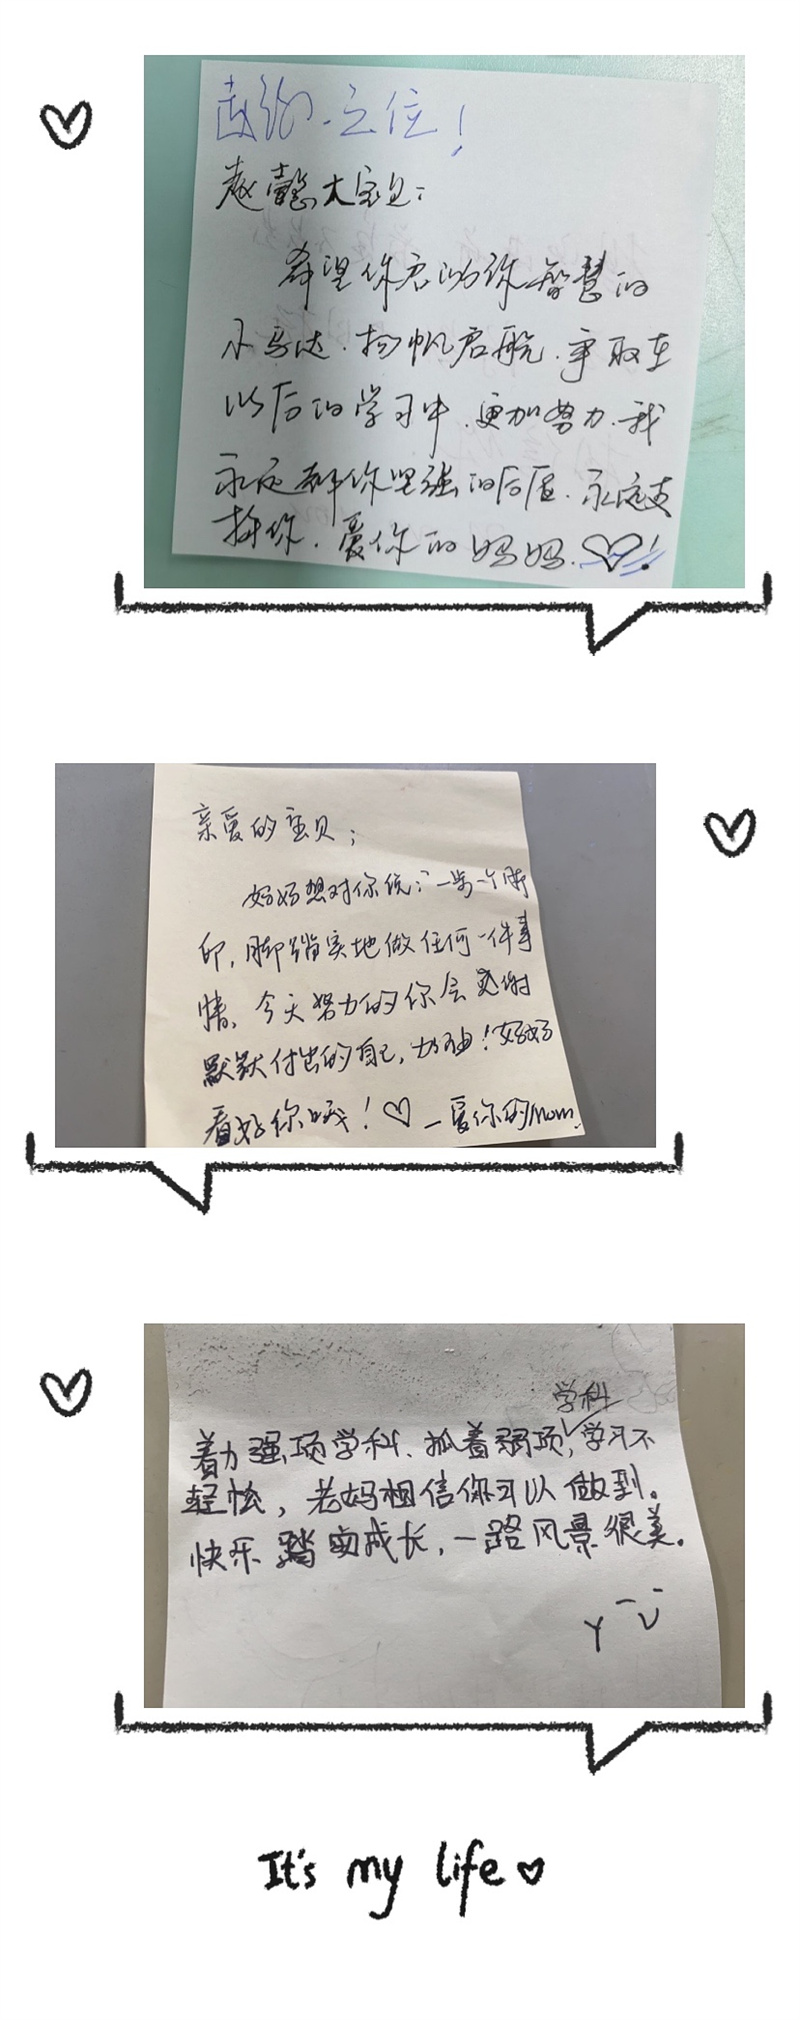 赵懿大宝贝：
希望你启动你智慧的
小马达．扬帆启航．争取在
以后的学习中．更加努力．我
永远都你坚强的后盾．永远支
持你．爱你的妈妈．
亲爱的宝贝；
妈妈想对你说：“一步一个脚
印，脚踏实地做任何一件事
情、今天努力的你会感谢
默默付出的自己，加油！妈妈
看好你哦！♡—爱你的Mom.
学科
着力强项学科、抓着弱项，学习不
轻松，老妈相信你可以做到。
快乐踏实成长，一路风景很美。
It's my life